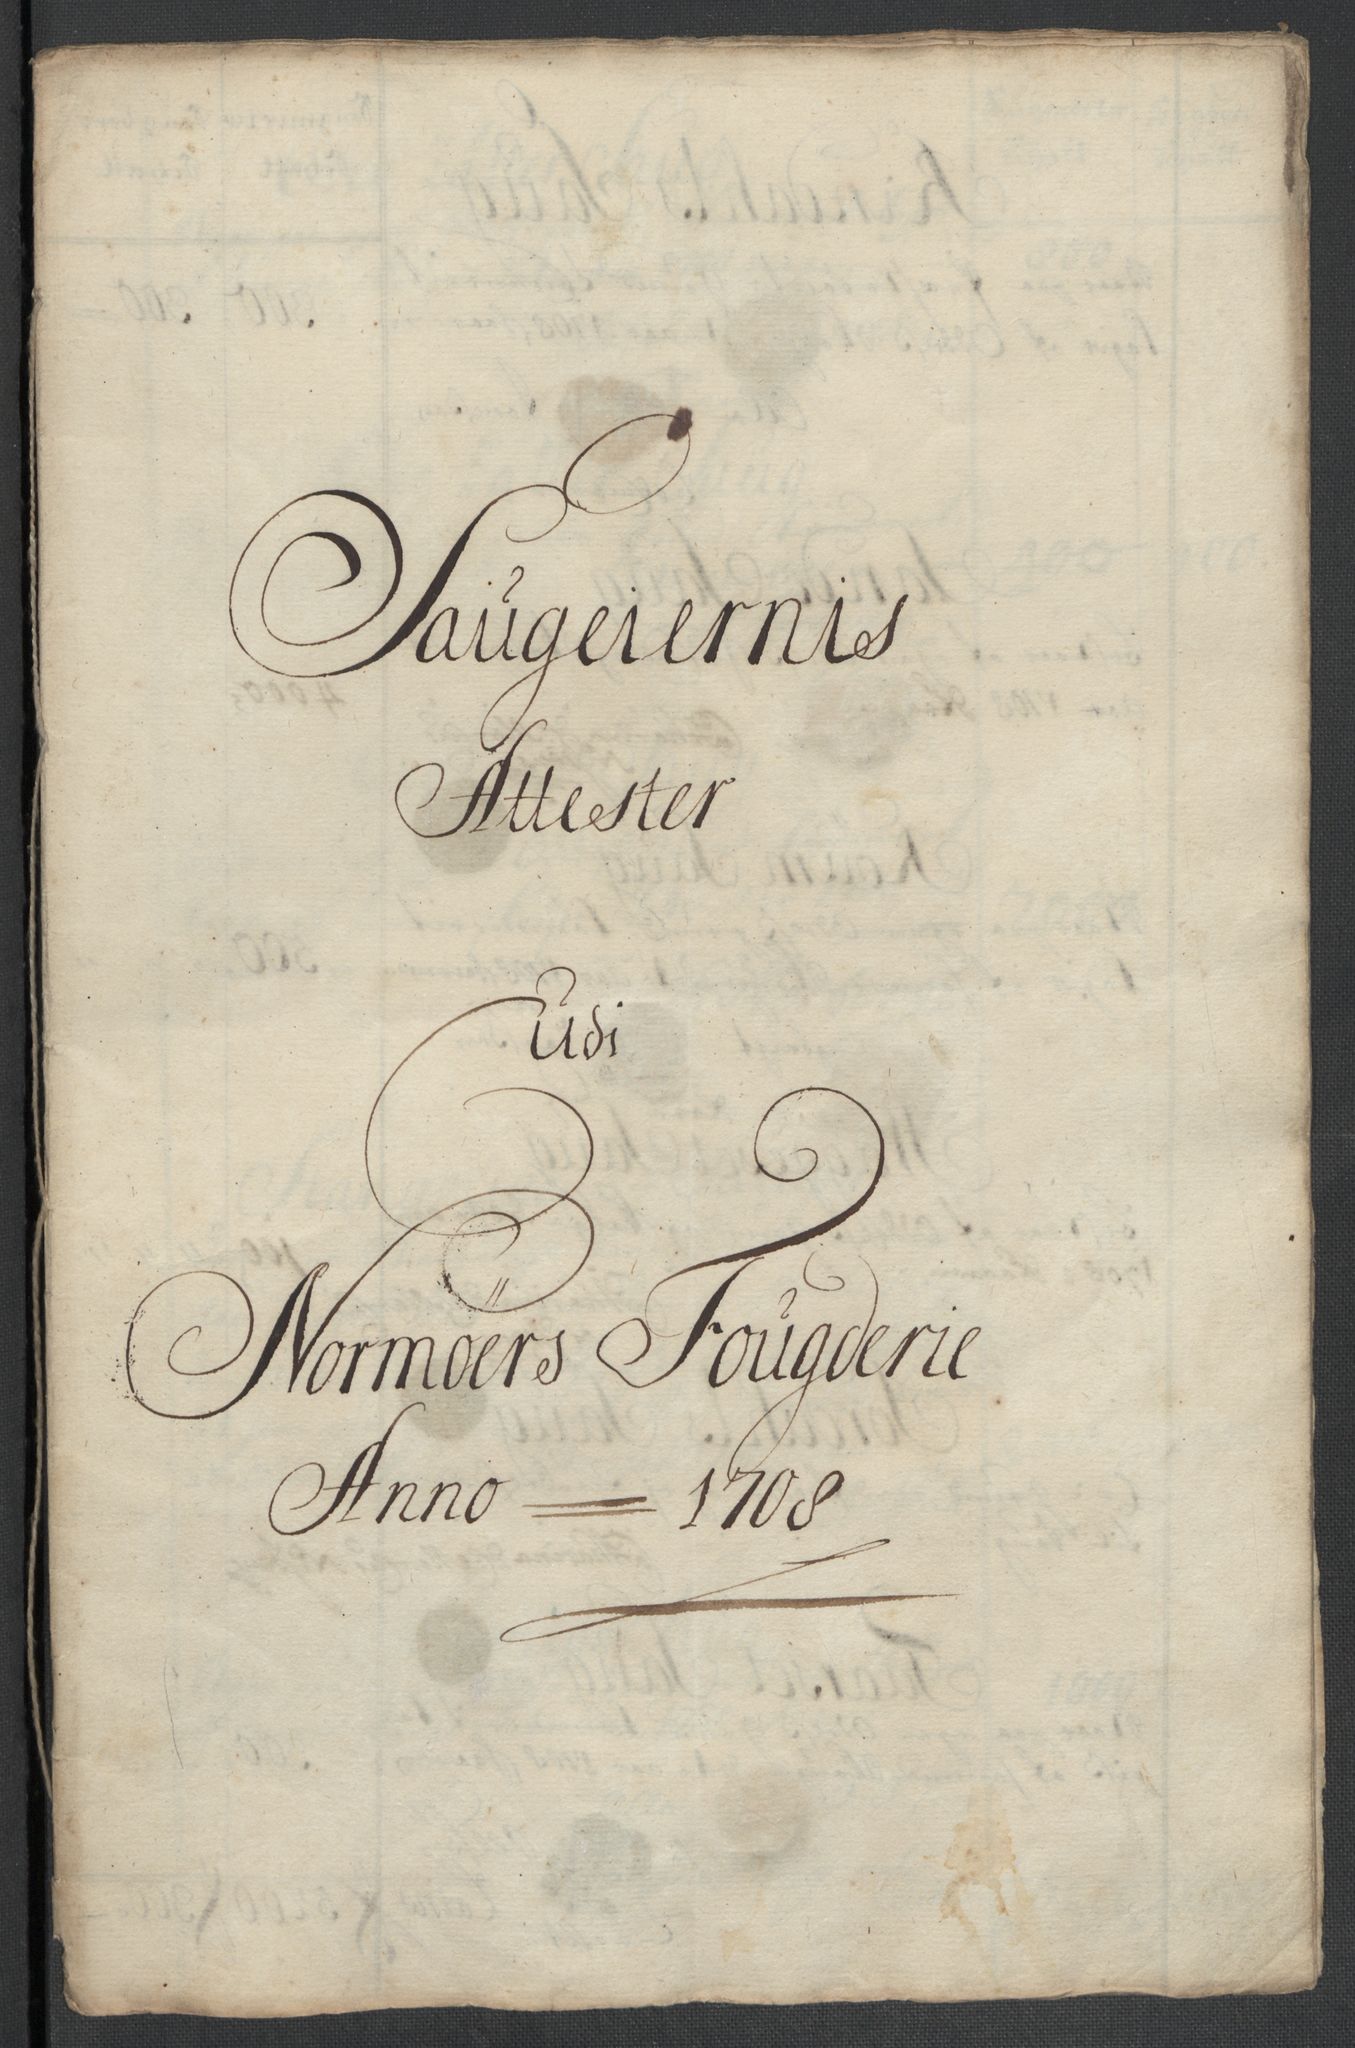 Saugeiernis
Attester
Udi
Normöers Fougderie
Anno = 1708